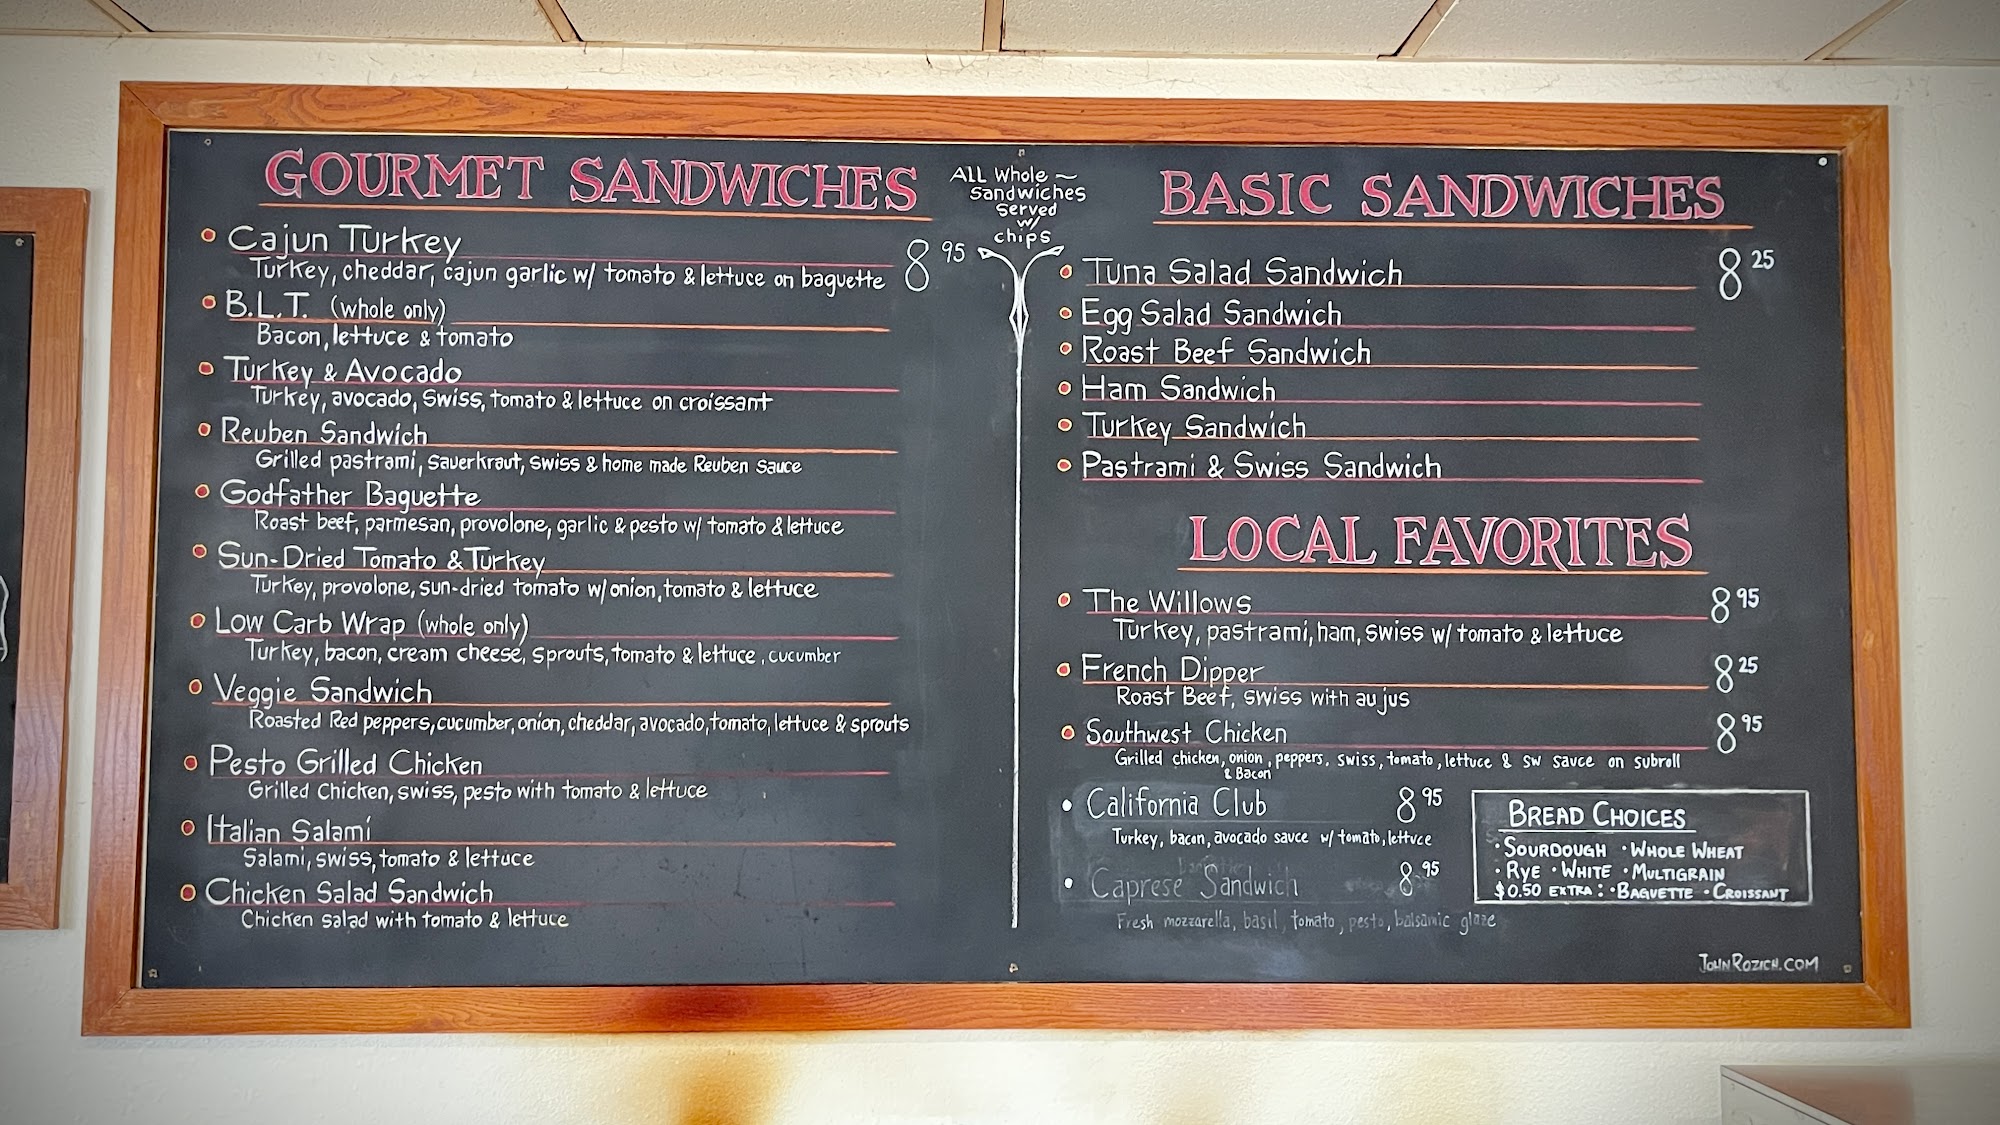 GOURMET SANDWICHES
Cajun Turkey 8 95
Turkey, cheddar, cajun garlic w/ tomato & lettuce on baguette
B.L.T. (whole only)
Bacon, lettuce & tomato
Turkey & Avocado
Turkey, avocado, Swiss, tomato & lettuce on croissant
Reuben Sandwich
Grilled pastrami, sauerkraut, swiss & home made Reuben sauce
Godfather Baguette
Roast beef, parmesan, provolone, garlic & pesto w/ tomato & lettuce
Sun-Dried Tomato & Turkey
Turkey, provolone, sun-dried tomato w/ onion, tomato & lettuce
Low Carb Wrap (whole only)
Turkey, bacon, cream cheese, sprouts, tomato & lettuce, cucumber
Veggie Sandwich
Roasted Red peppers, cucumber, onion, cheddar, avocado, tomato, lettuce & sprouts
Pesto Grilled Chicken
Grilled Chicken, swiss, pesto with tomato & lettuce
Italian Salami
Salami, swiss, tomato & lettuce
Chicken Salad Sandwich
Chicken salad with tomato & lettuce
ALL Whole ~
Sandwiches
Served
w/
chips
BASIC SANDWICHES
Tuna Salad Sandwich 8 25
Egg Salad Sandwich
Roast Beef Sandwich
Ham Sandwich
Turkey Sandwich
Pastrami & Swiss Sandwich
LOCAL FAVORITES
The Willows 8 95
Turkey, pastrami, ham, swiss w/ tomato & lettuce
French Dipper 8 25
Roast Beef, swiss with au jus
Southwest Chicken 8 95
Grilled chicken, onion, peppers, swiss, tomato, lettuce & sw sauce on subroll
& Bacon
California Club 8 95
Turkey, bacon, avocado sauce w/ tomato, lettuce
Caprese Sandwich 8.95
Fresh mozzarella, basil, tomato, pesto, balsamic glaze
BREAD CHOICES
• SOURDOUGH • WHOLE WHEAT
• RYE • WHITE • MULTIGRAIN
$0.50 EXTRA: • BAGUETTE • CROISSANT
JOHNROZICH.COM